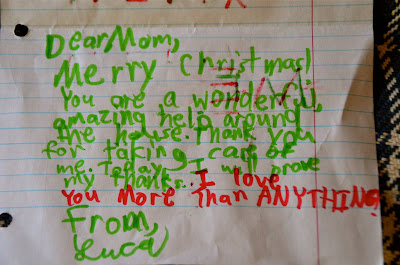 Dear Mom,
Merry Christmas!
You are a wonderful,
amazing help around
the house. Thank you
for taking care of
me. Today I will prove
my thanks. I love
You More Than ANYTHING!
From,
Luca